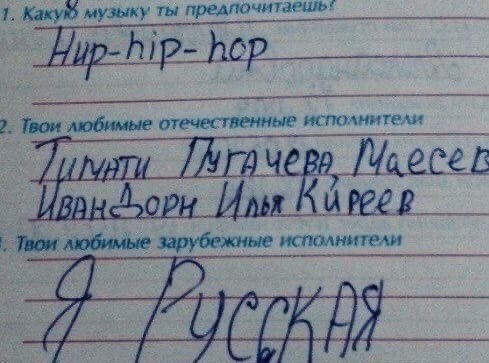 1. Какую музыку ты предпочитаешь?
Нир-hip-hop
2. Твои любимые отечественные исполнители
Тимати Пугачева, Маесев
Иван Дорн Илья Киреев
Твои любимые зарубежные исполнители
Я РУССКАЯ